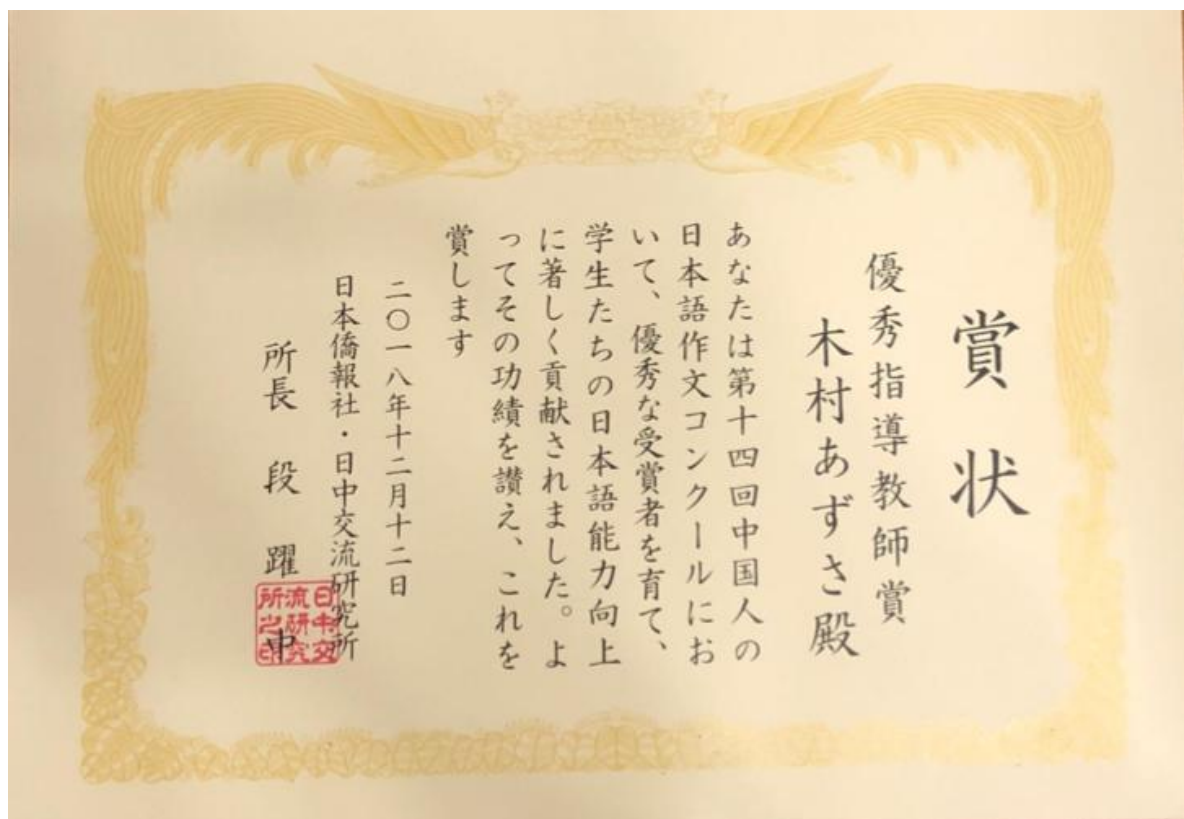 賞状
優秀指導教師賞
木村あずさ殿
あなたは第十四回中国人の
日本語作文コンクールにお
いて、優秀な受賞者を育て、
学生たちの日本語能力向上
に著しく貢献されました。よ
ってその功績を讃え、これを
賞します
二〇一八年十二月十二日
日本僑報社・日中交流研究所
所長 段 躍 中
日中交
流研究
所之印